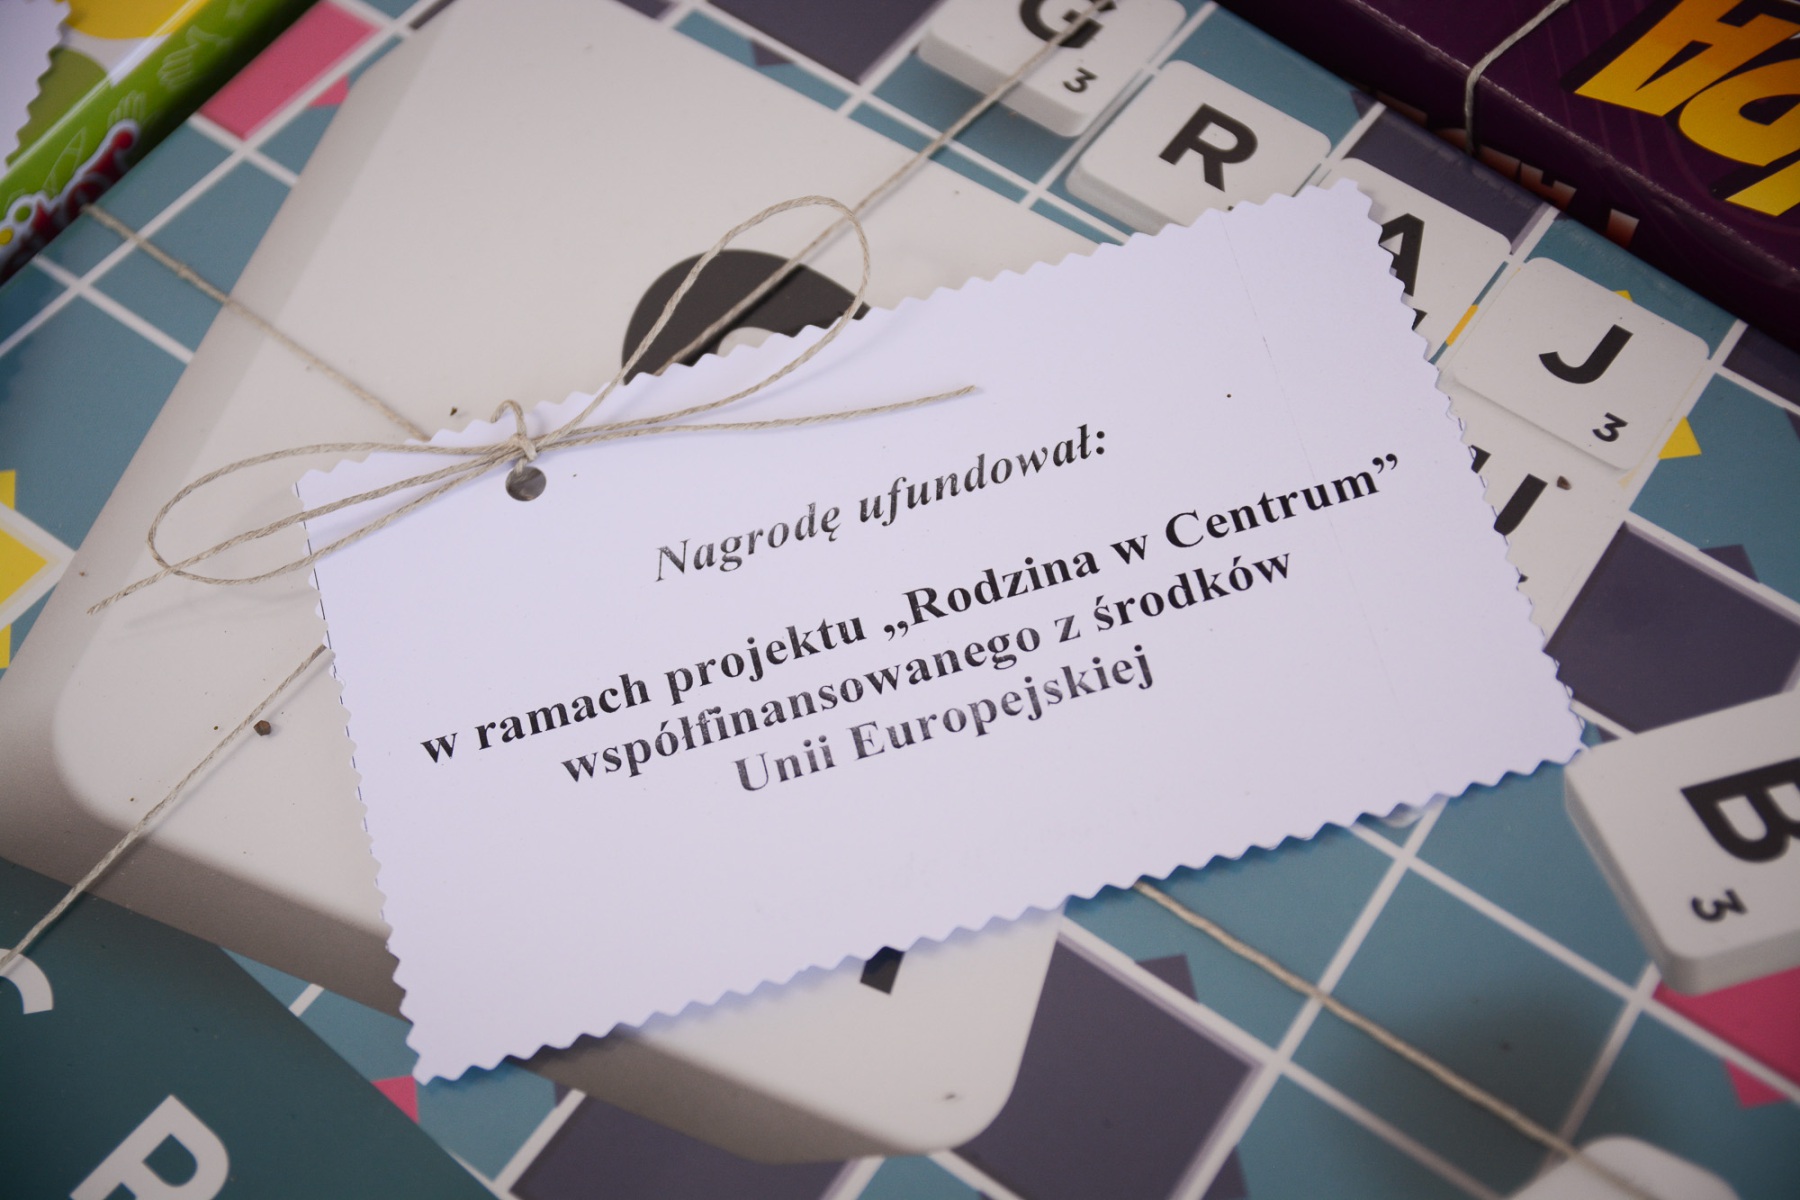 G
3
R
A
J
3
B
3
Nagrodę ufundował:
w ramach projektu „Rodzina w Centrum”
współfinansowanego z środków
Unii Europejskiej
R